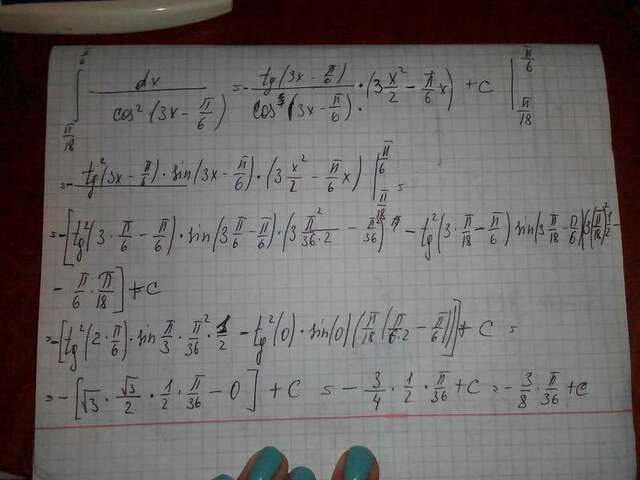 ∫_{π/18}^{π/6} dx / cos²(3x − π/6) = − tg(3x − π/6) / cos(3x − π/6) · (3 x²/2 − π/6 x) + C |_{π/18}^{π/6}
= − tg²(3x − π/6) · sin(3x − π/6) · (3 x²/2 − π/6 x) |_{π/18}^{π/6} =
= −[tg²(3 · π/6 − π/6) · sin(3 π/6 − π/6) · (3 π²/(36·2) − π²/36) − tg²(3 · π/18 − π/6) sin(3 π/18 − π/6)(3(π/18)² 1/2 −
− π/6 · π/18] + C
= −[tg²(2 · π/6) · sin π/3 · π²/36 · 1/2 − tg²(0) · sin(0) (π/18 (π/6·2 − π/6))] + C =
= −[√3 · √3/2 · 1/2 · π/36 − 0] + C = − 3/4 · 1/2 · π/36 + C = − 3/8 · π/36 + C